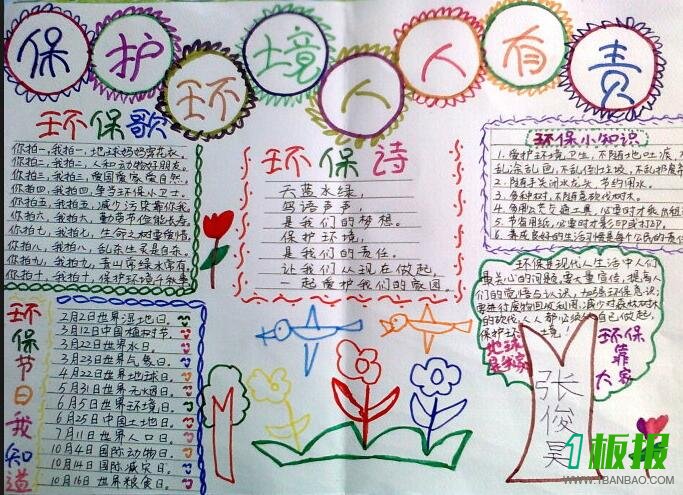 保护环境人人有责
环保歌
你拍一,我拍一,地球妈妈穿花衣。
你拍二,我拍二,人和动物好朋友。
你拍三,我拍三,爱国爱家爱自然。
你拍四,我拍四,争当环保小卫士。
你拍五,我拍五,减少污染靠你我。
你拍六,我拍六,勤俭节俭能长寿。
你拍七,我拍七,生命之树要爱惜。
你拍八,我拍八,乱杀生灵是自杀。
你拍九,我拍九,青山常绿水常有。
你拍十,我拍十,保护环境
环保诗
天蓝水绿,
鸟语声声,
是我们的梦想。
保护环境,
是我们的责任。
让我们从现在做起,
一起爱护我们的家园。
环保小知识
1.爱护环境卫生,不随地吐痰,不
乱涂乱画,不乱倒垃圾,不乱扔废弃
2.随手关闭水龙头,节约用水。
3.多种树,不随意砍伐树木。
4.多用公共交通工具,必要时才乘出租
5.节省用纸,必要时才影印或打印。
6.养成良好的生活习惯是每个公民的责任
环保是现代人生活中人们
最关心的问题,要大量宣传,提高人
们的觉悟与认识,加强环保意识,
要进行废物回收利用,减少对森林树木
的砍伐,人人都必须从自己做起,
保护环境!
地球是我家
环保靠大家
张俊昊
环保节日我知道
2月2日世界湿地日。
3月12日中国植树节。
3月22日世界水日。
3月23日世界气象日。
4月22日世界地球日。
5月31日世界无烟日。
6月5日世界环境日。
6月25日中国土地日。
7月11日世界人口日。
10月4日国际动物日。
10月14日国际减灾日。
10月16日世界粮食日。
1板报
WWW.1BANBAO.COM